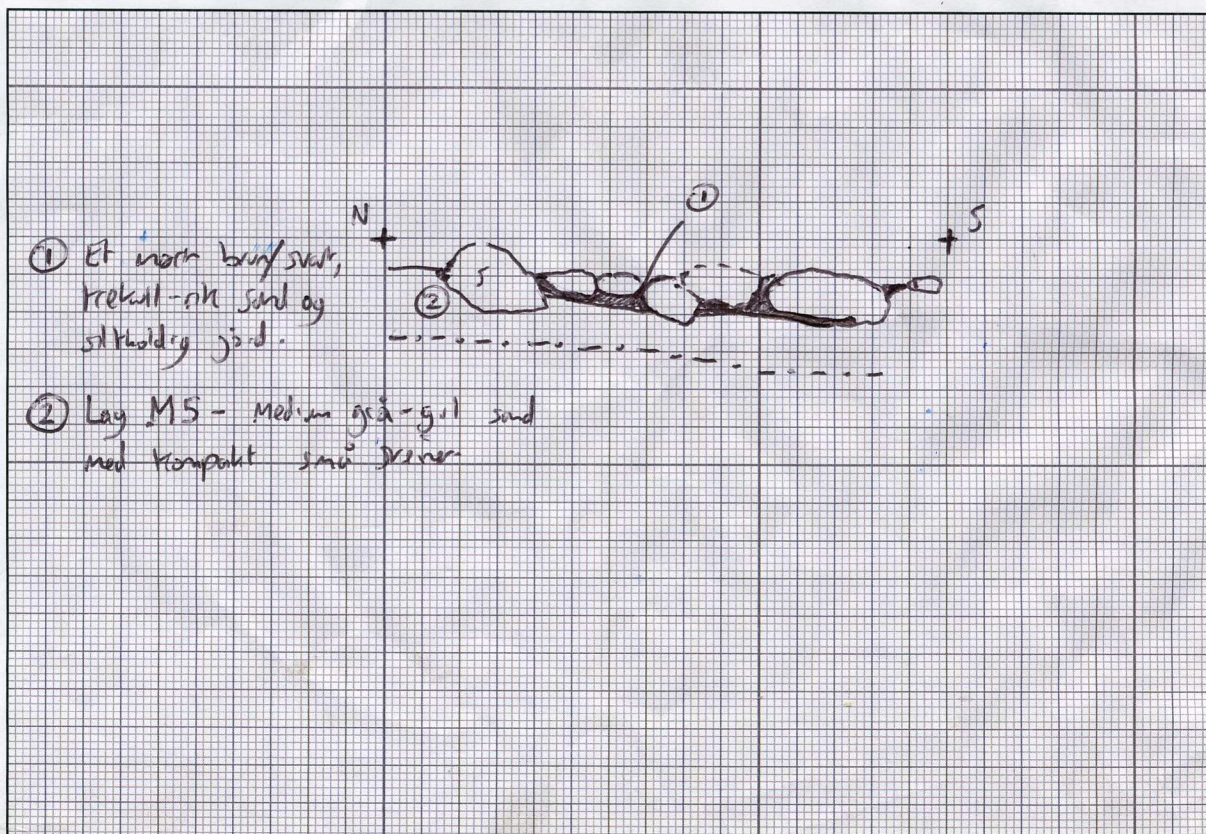 N
S
①
① Et mørk brun/svart,
trekull-rik sand og
siltholdig jord.
S
②
② Lag M5 - Medium grå-gul sand
med kompakt små steiner